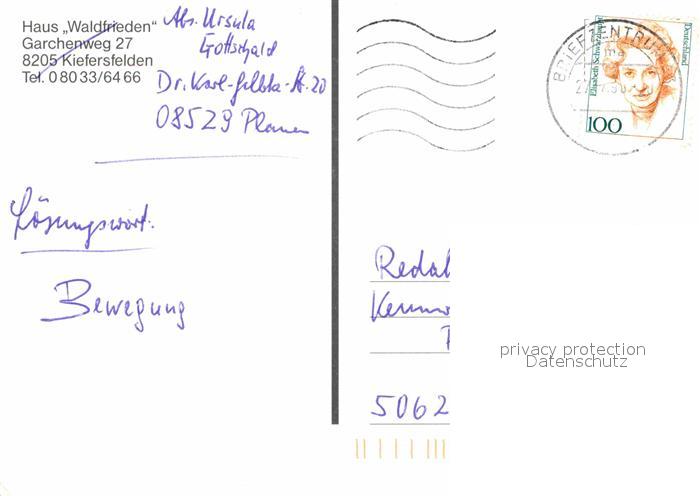 Haus „Waldfrieden“
Garchenweg 27
8205 Kiefersfelden
Tel. 0 80 33/64 66
Abs. Ursula
Gottschald
20
08529 Plauen
Lösungswort:
Bewegung
BRIEFZENTRUM
Elisabeth Schwarzhaupt
Deutschland
100
Redak
5062
privacy protection
Datenschutz